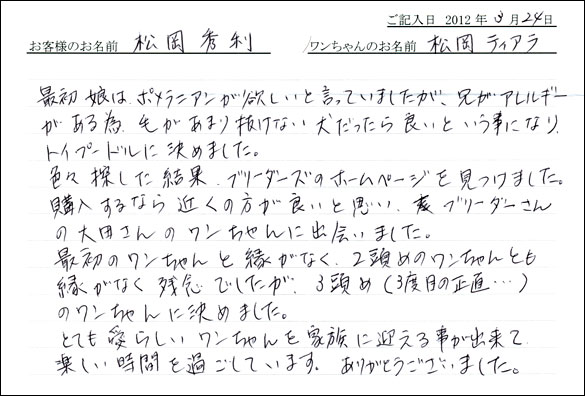 ご記入日 2012年3月24日
お客様のお名前 松岡秀利 ワンちゃんのお名前 松岡ティアラ
最初娘は、ポメラニアンが欲しいと言っていましたが、兄がアレルギー
がある為、毛があまり抜けない犬だったら良いという事になり、
トイプードルに決めました。
色々探した結果、ブリーダーズのホームページを見つけました。
購入するなら近くの方が良いと思い、ブリーダーさん
の太田さんのワンちゃんに出会いました。
最初のワンちゃんと縁がなく、2頭めのワンちゃんとも
縁がなく残念でしたが、3頭め(3度目の正直…)
のワンちゃんに決めました。
とても愛らしいワンちゃんを家族に迎える事が出来て
楽しい時間を過ごしています。ありがとうございました。